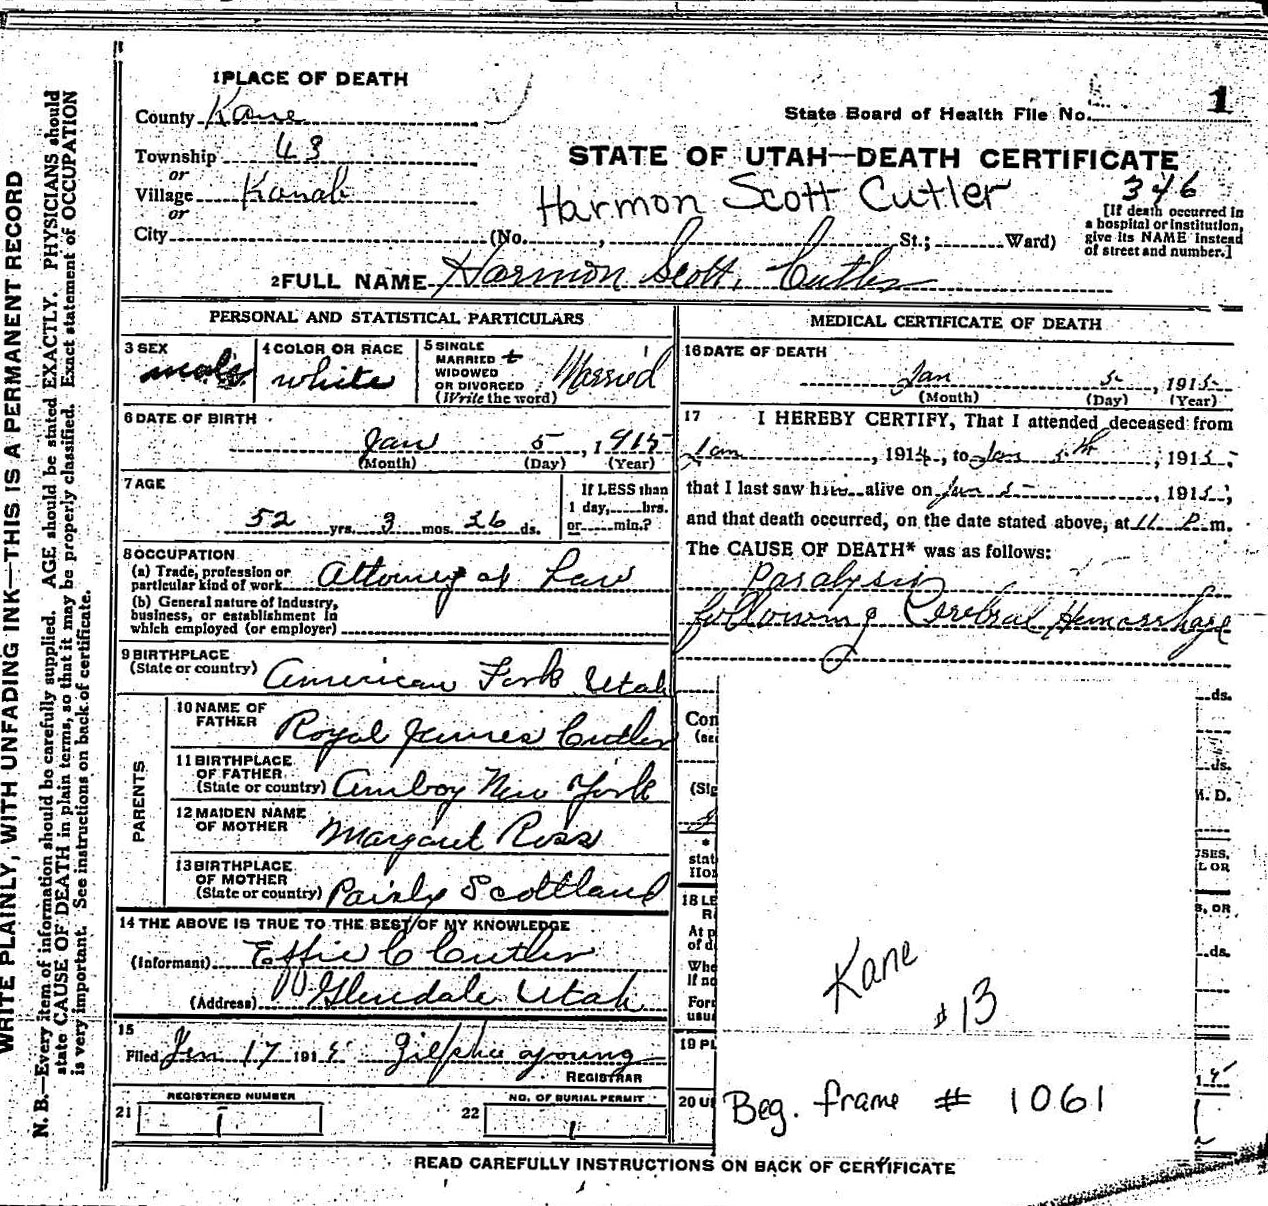 WRITE PLAINLY, WITH UNFADING INK—THIS IS A PERMANENT RECORD
N. B.—Every item of information should be carefully supplied. AGE should be stated EXACTLY. PHYSICIANS should
state CAUSE OF DEATH in plain terms, so that it may be properly classified. Exact statement of OCCUPATION
is very important. See instructions on back of certificate.
1 PLACE OF DEATH
County Kane
Township 43
or
Village Kanab
or
City (No. , St.; Ward)
State Board of Health File No. 1
STATE OF UTAH—DEATH CERTIFICATE
Harmon Scott Cutler
346
[If death occurred in
a hospital or institution,
give its NAME instead
of street and number.]
2 FULL NAME Harmon Scott, Cutler
PERSONAL AND STATISTICAL PARTICULARS
3 SEX
male
4 COLOR OR RACE
white
5 SINGLE
MARRIED
WIDOWED
OR DIVORCED
(Write the word)
Married
6 DATE OF BIRTH
Jan 5, 1915
(Month) (Day) (Year)
7 AGE
52 yrs. 3 mos. 26 ds.
If LESS than
1 day, hrs.
or min.?
8 OCCUPATION
(a) Trade, profession or
particular kind of work Attorney at Law
(b) General nature of industry,
business, or establishment in
which employed (or employer)
9 BIRTHPLACE
(State or country) American Fork Utah
PARENTS
10 NAME OF
FATHER Royal James Cutler
11 BIRTHPLACE
OF FATHER
(State or country) Amboy New York
12 MAIDEN NAME
OF MOTHER Margaret Ross
13 BIRTHPLACE
OF MOTHER
(State or country) Paisly Scottland
14 THE ABOVE IS TRUE TO THE BEST OF MY KNOWLEDGE
(Informant) Effie C Cutler
(Address) Glendale Utah
15
Filed Jan 17 1915
REGISTRAR
REGISTERED NUMBER
21 1
NO. OF BURIAL PERMIT
22 1
MEDICAL CERTIFICATE OF DEATH
16 DATE OF DEATH
Jan 5, 1915
(Month) (Day) (Year)
17 I HEREBY CERTIFY, That I attended deceased from
Jan , 1914, to Jan 5th, 1915;
that I last saw him alive on Jan 5, 1915;
and that death occurred, on the date stated above, at 11 P. m.
The CAUSE OF DEATH* was as follows:
Paralysis
following Cerebral Hemorrhage
ds.
Con
ds.
(Sig
M. D.
*
stat
18 LE
At p
of d
ds.
Whe
If no
For
usu
19 PL
20 U
Kane
#13
Beg. frame # 1061
READ CAREFULLY INSTRUCTIONS ON BACK OF CERTIFICATE